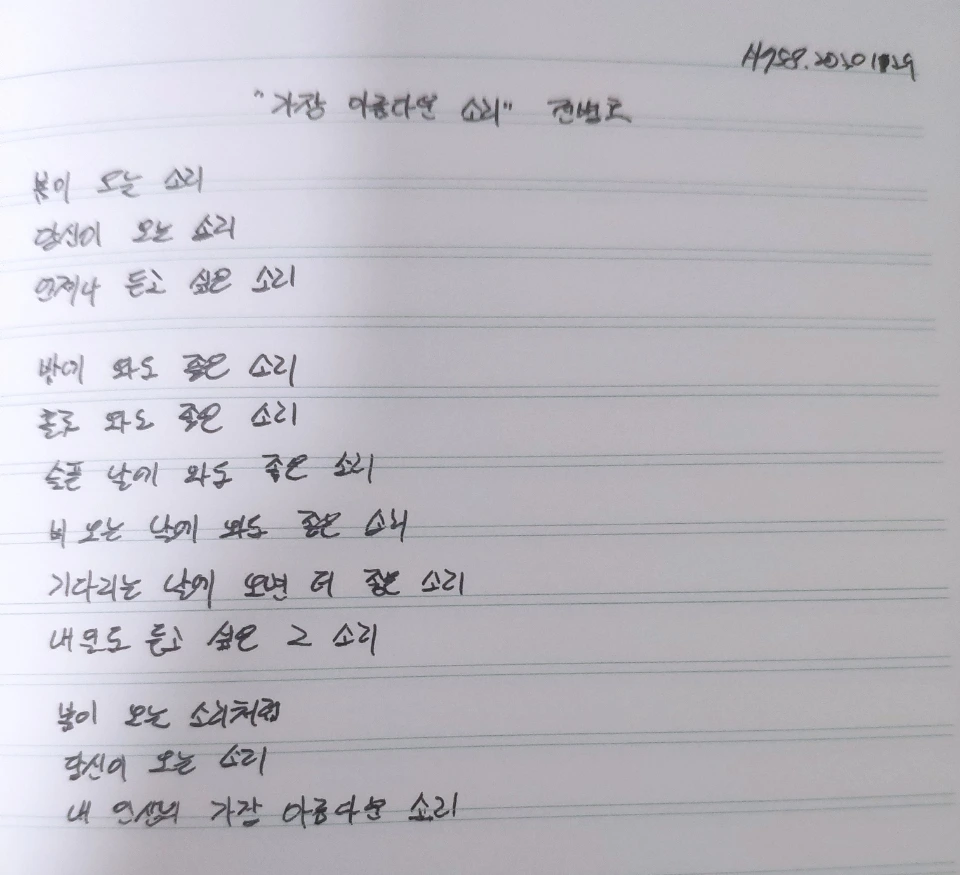 A958.20201129
"가장 아름다운 소리" 전병호
봄이 오는 소리
당신이 오는 소리
언제나 듣고 싶은 소리
밤에 와도 좋은 소리
홀로 와도 좋은 소리
슬픈 날에 와도 좋은 소리
비 오는 날에 와도 좋은 소리
기다리는 날에 오면 더 좋은 소리
내일도 듣고 싶은 그 소리
봄이 오는 소리처럼
당신이 오는 소리
내 인생의 가장 아름다운 소리